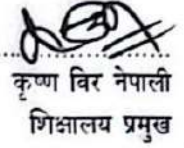 कृष्ण विर नेपाली
शिक्षालय प्रमुख